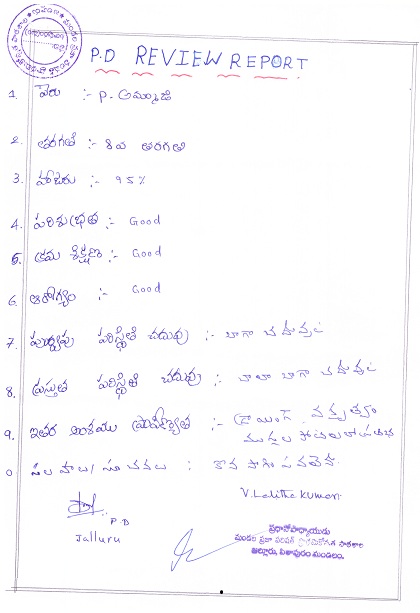 P.D REVIEW REPORT
1. పేరు :- P. అమ్మాజి
2. తరగతి :- 8వ తరగతి
3. హాజరు :- 95%
4. పరిశుభ్రత :- Good
5. క్రమ శిక్షణ :- Good
6. ఆరోగ్యం :- Good
7. పూర్వపు పరిస్థితి చదువు :- బాగా చదువును
8. ప్రస్తుత పరిస్థితి చదువు :- చాలా బాగా చదువును
9. ఇతర అంశములు ప్రావీణ్యత :- డ్రాయింగ్ వక్తృత్వం
సలహాలు/సూచనలు : కొన సాగింపవలెను
V. Lalitha Kumari
P.D
Jalluru
ప్రధానోపాధ్యాయుడు
మండల ప్రజా పరిషత్ ప్రాథమికోన్నత పాఠశాల
జల్లూరు, పిఠాపురం మండలం.